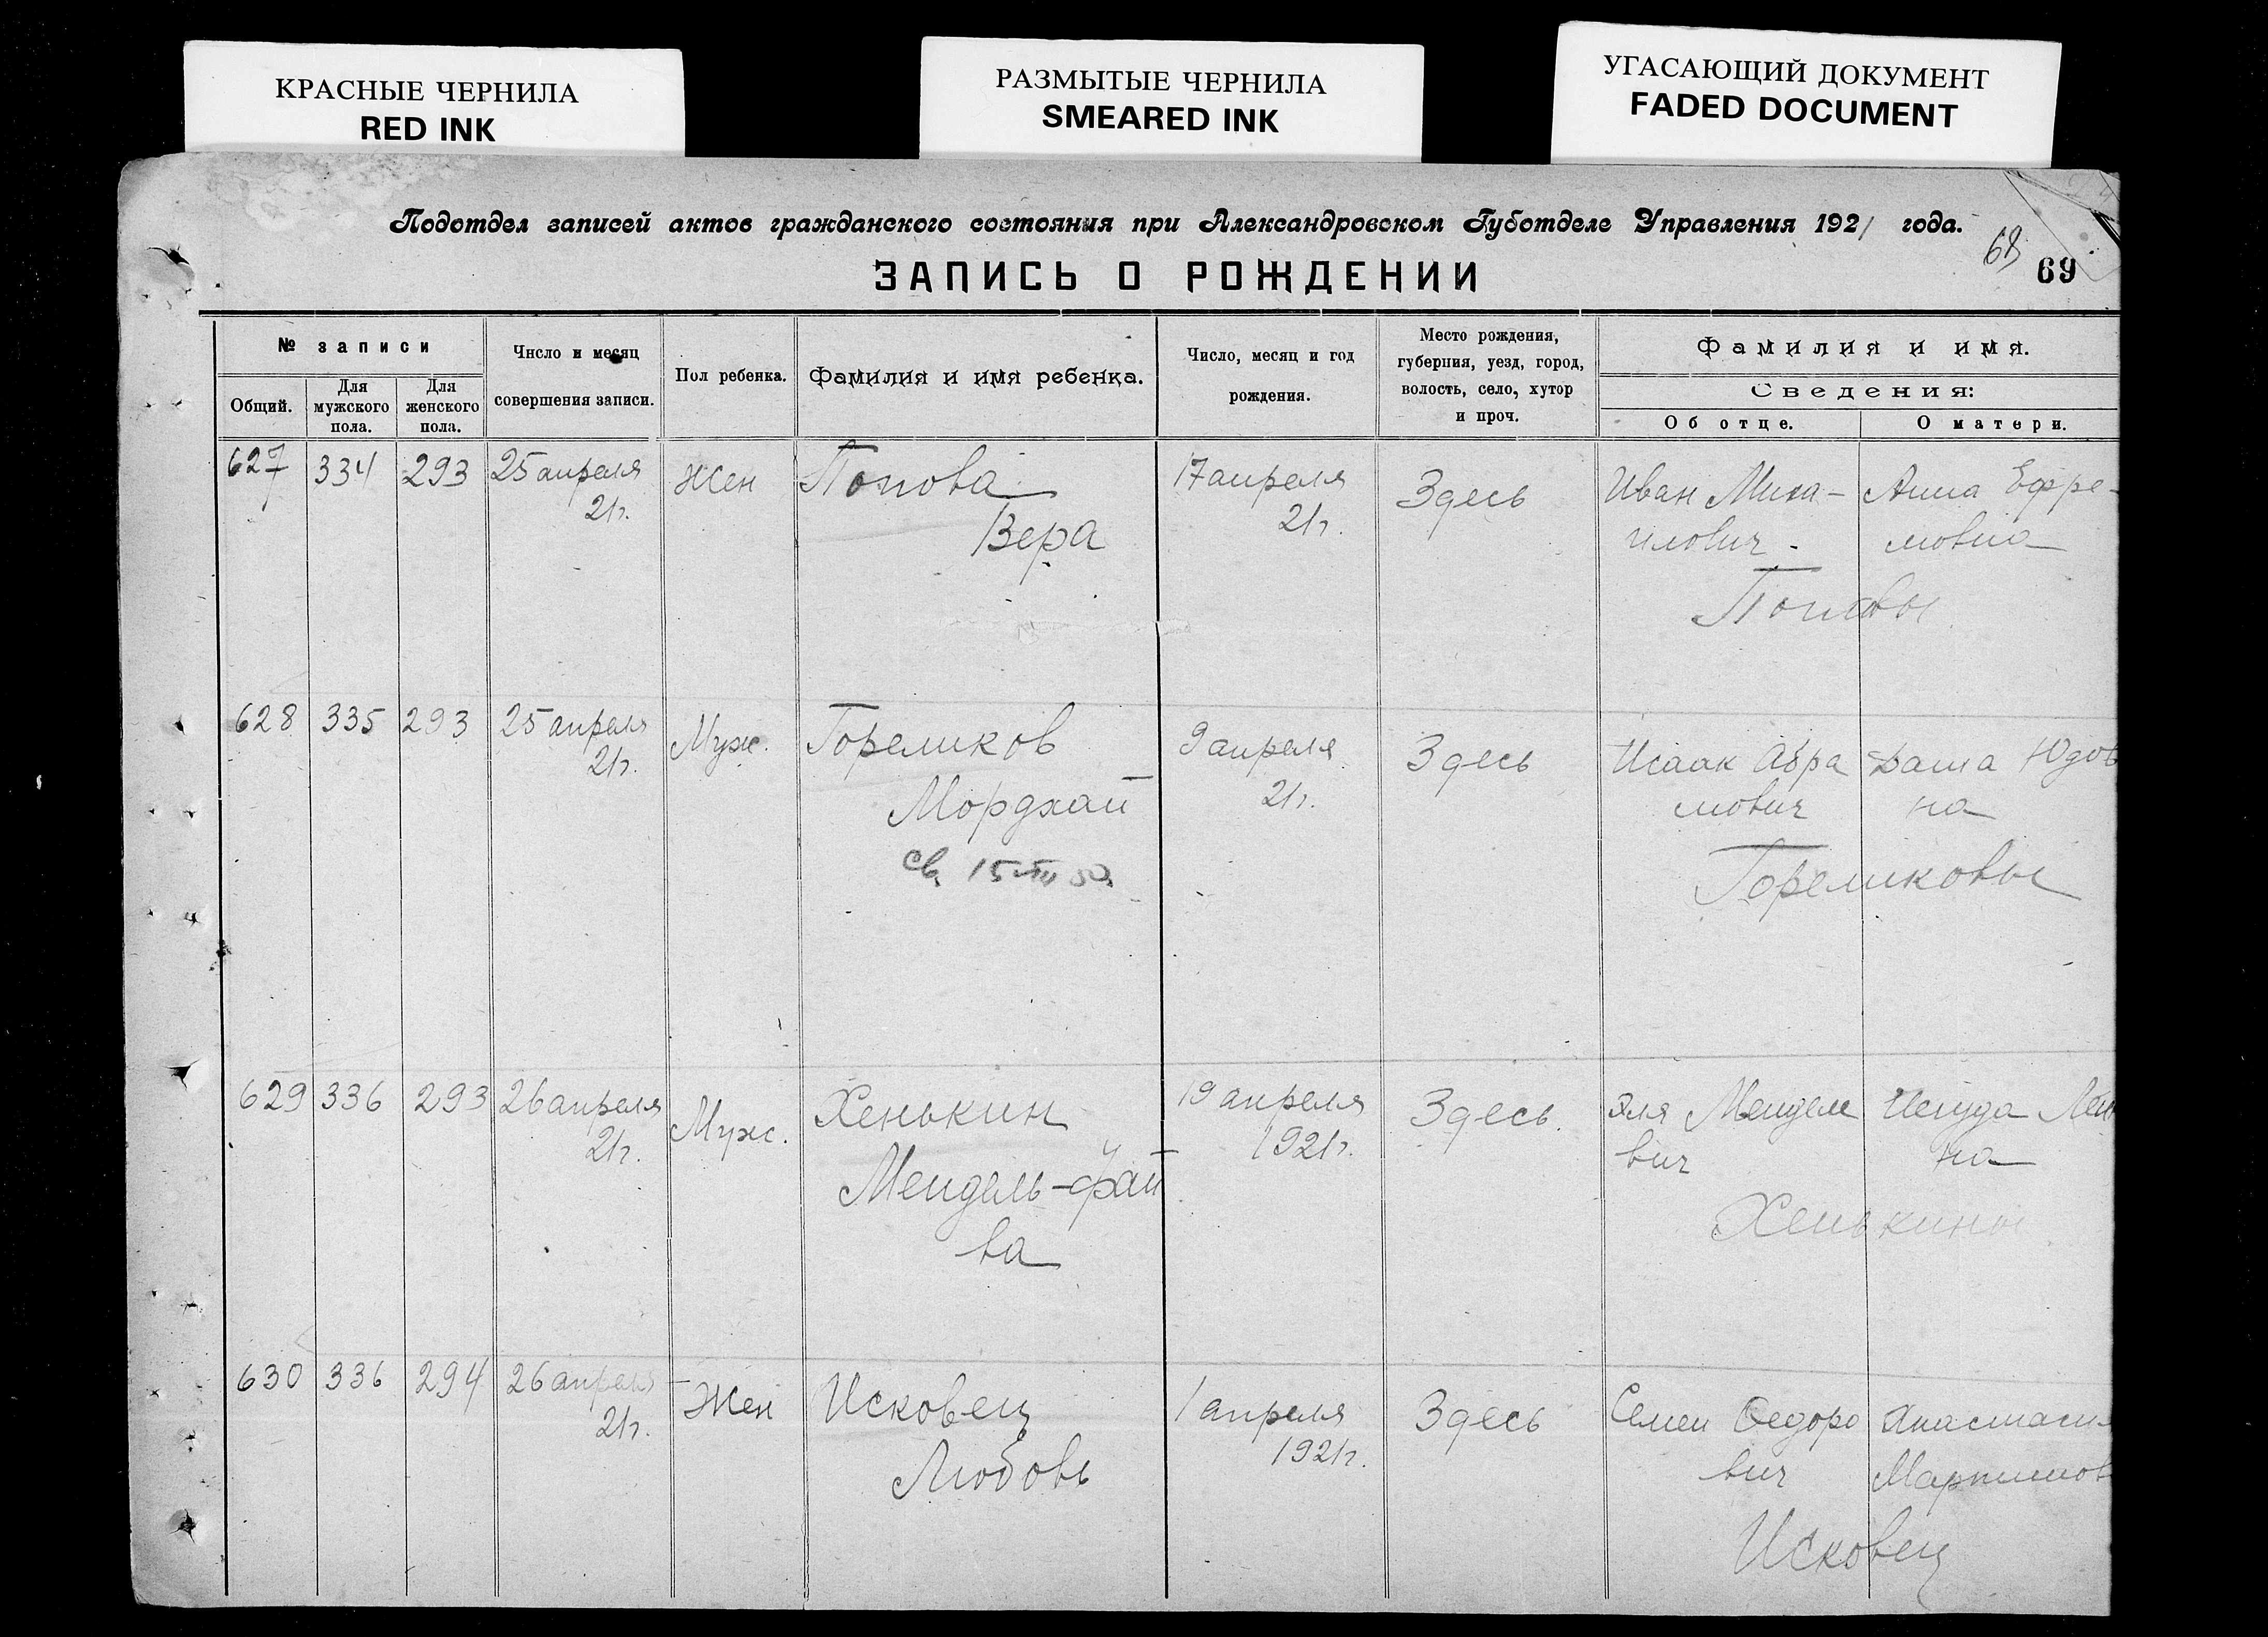 КРАСНЫЕ ЧЕРНИЛА
RED INK
РАЗМЫТЫЕ ЧЕРНИЛА
SMEARED INK
УГАСАЮЩИЙ ДОКУМЕНТ
FADED DOCUMENT
Подотдел записей актов гражданского состояния при Александровском Губотделе Управления 1921 года.
68
69
ЗАПИСЬ О РОЖДЕНИИ
№ записи
Общий.
Для
мужского
пола.
Для
женского
пола.
Число и месяц
совершения записи.
Пол ребенка.
Фамилия и имя ребенка.
Число, месяц и год
рождения.
Место рождения,
губерния, уезд, город,
волость, село, хутор
и проч.
Фамилия и имя.
Сведения:
Об отце.
О матери.
627
334
293
25 апреля
21г.
Жен
Попова
Вера
17 апреля
21г.
Здесь
Иван Миха-
илович.
Анна Ефре-
мовна
Поповы
628
335
293
25 апреля
21г.
Муж.
Гореликов
Мордхай
св. 15
9 апреля
21г.
Здесь
Исаак Абра
мович
Юдов
на
Гореликовы
629
336
293
26 апреля
21г.
Муж.
Хенькин
Мендель-Фай
ва
19 апреля
1921г.
Здесь.
Эля Менделе
вич
на
Хенькины
630
336
294
26 апреля
21г.
Жен
Исковец
Любовь
1 апреля
1921г.
Здесь
Семен Федоро
вич
Анастасия
Мартинов
Исковец